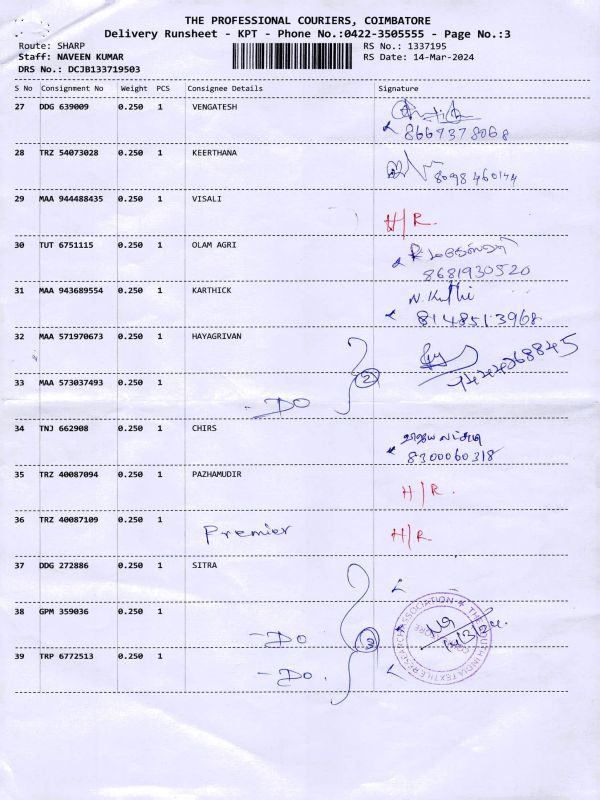 THE PROFESSIONAL COURIERS, COIMBATORE
Delivery Runsheet - KPT - Phone No.:0422-3505555 - Page No.:3
Route: SHARP RS No.: 1337195
Staff: NAVEEN KUMAR RS Date: 14-Mar-2024
DRS No.: DCJB133719503
S No Consignment No Weight PCS Consignee Details Signature
27 DDG 639009 0.250 1 VENGATESH
8669378068
28 TRZ 54073028 0.250 1 KEERTHANA
8098460144
29 MAA 944488435 0.250 1 VISALI H/R.
30 TUT 6751115 0.250 1 OLAM AGRI
8681930520
31 MAA 943689554 0.250 1 KARTHICK
8148513968
32 MAA 571970673 0.250 1 HAYAGRIVAN
33 MAA 573037493 0.250 1 -DO 2
34 TNJ 662908 0.250 1 CHIRS
8300060318
35 TRZ 40087094 0.250 1 PAZHAMUDIR H/R.
36 TRZ 40087109 0.250 1 Premier H/R
37 DDG 272886 0.250 1 SITRA
38 GPM 359036 0.250 1 -DO 3
39 TRP 6772513 0.250 1 -DO.
THE SOUTH INDIA TEXTILE RESEARCH ASSOCIATION
14/3/24.